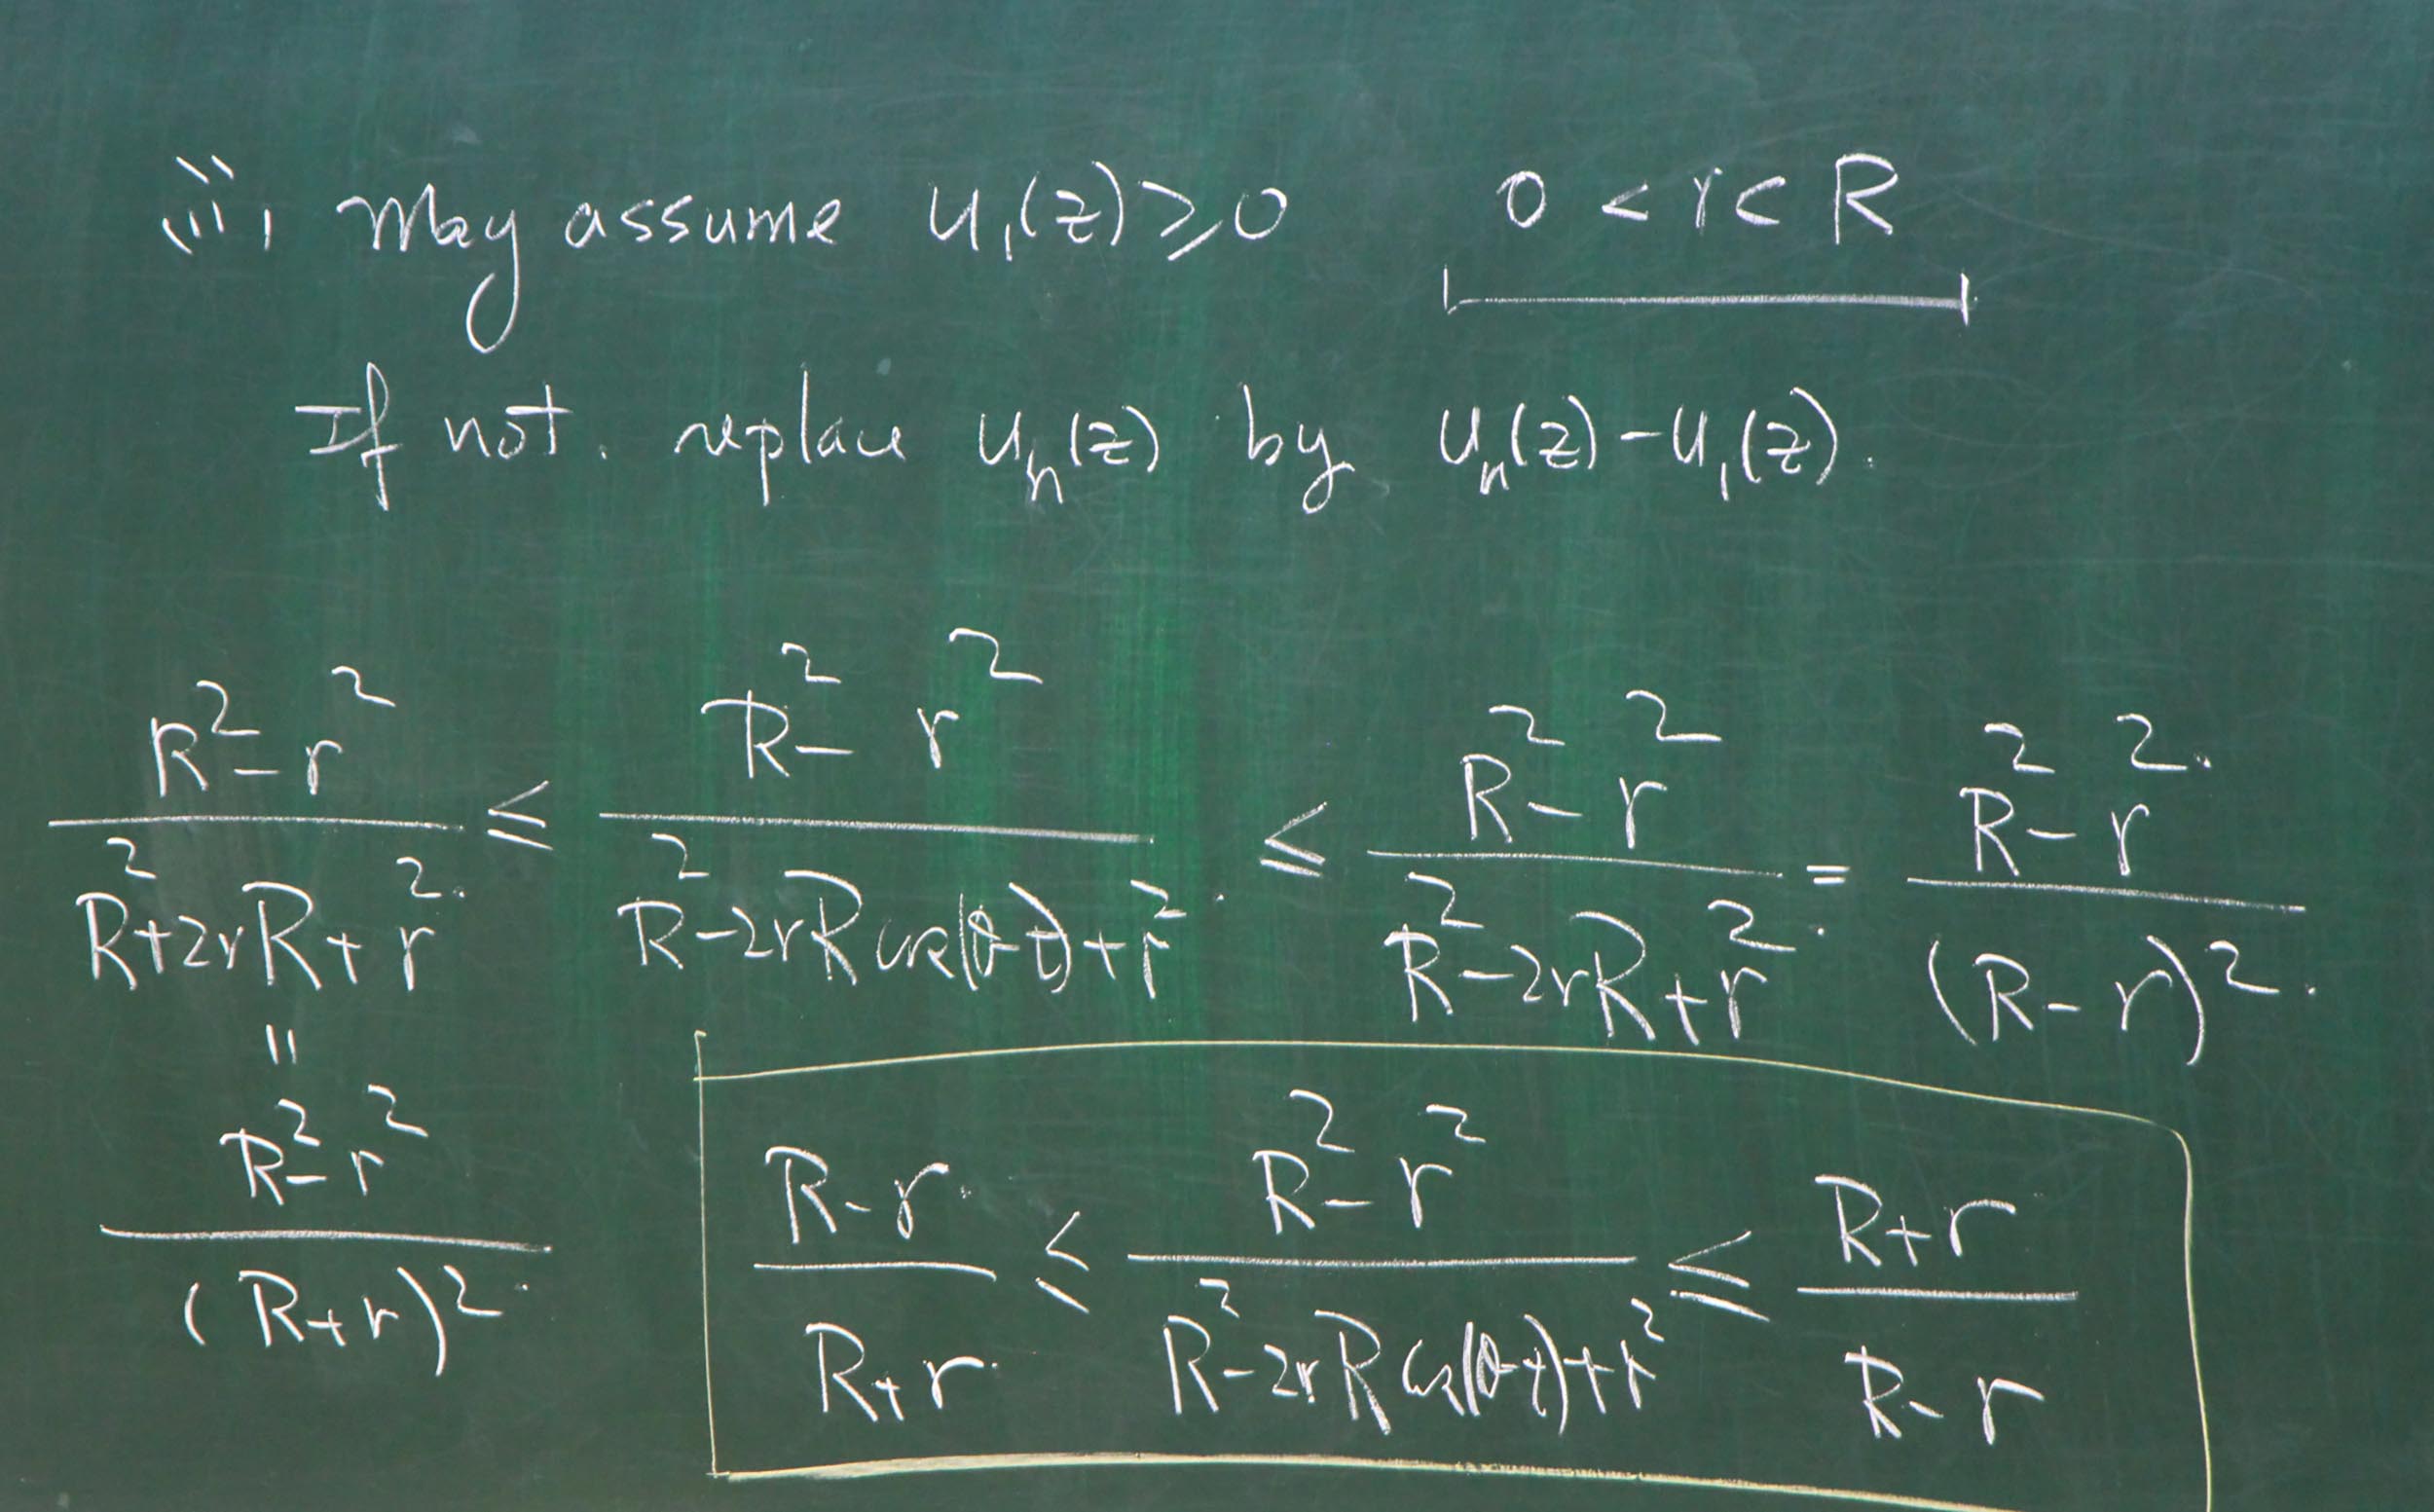 iii, May assume u₁(z) ≥ 0    0 < r < R
If not. replace uₙ(z) by uₙ(z) - u₁(z).
(R² - r²)/(R² + 2rR + r²) ≤ (R² - r²)/(R² - 2rR cos(θ-t) + r²) ≤ (R² - r²)/(R² - 2rR + r²) = (R² - r²)/(R - r)².
= (R² - r²)/(R + r)².
(R - r)/(R + r) ≤ (R² - r²)/(R² - 2rR cos(θ-t) + r²) ≤ (R + r)/(R - r)